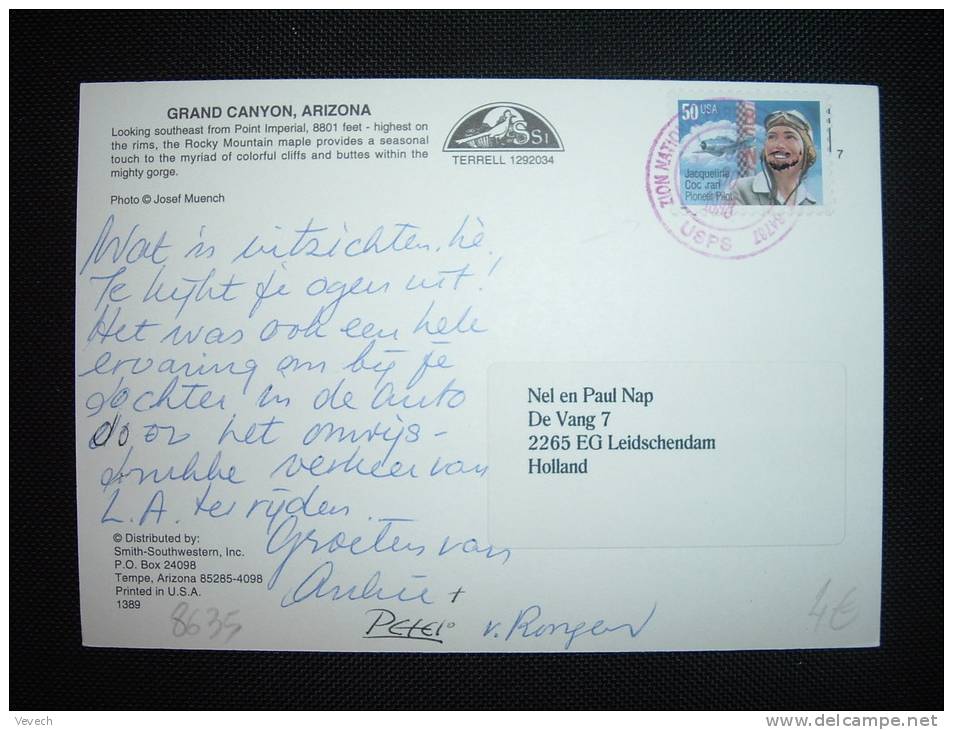 GRAND CANYON, ARIZONA
Looking southeast from Point Imperial, 8801 feet - highest on
the rims, the Rocky Mountain maple provides a seasonal
touch to the myriad of colorful cliffs and buttes within the
mighty gorge.
Photo © Josef Muench
SSI
TERRELL 1292034
50 USA
Jacqueline
Cochran
Pioneer Pilot
7
ZION NATIO
84767
USPS
Wat 'n uitzichten, hè.
Je kijkt je ogen uit!
Het was ook een hele
ervaring om bij je
dochter in de auto
door het onwijs-
drukke verkeer van
L.A. te rijden.
Groeten van
+
Peter v. Rongen
Nel en Paul Nap
De Vang 7
2265 EG Leidschendam
Holland
© Distributed by:
Smith-Southwestern, Inc.
P.O. Box 24098
Tempe, Arizona 85285-4098
Printed in U.S.A.
1389
8635
4€
Vevech
www.delcampe.net